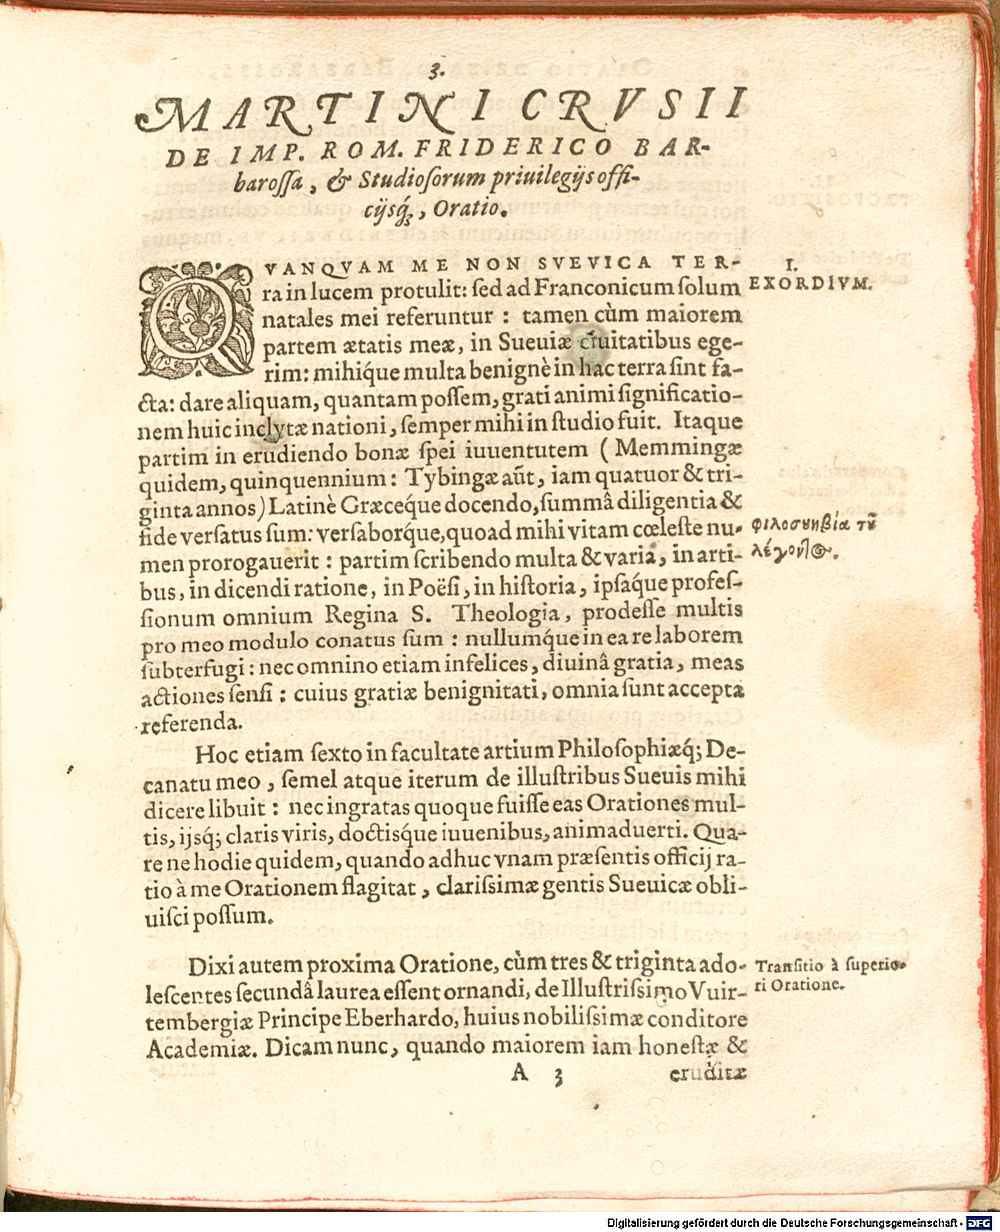 3.
MARTINI CRVSII
DE IMP. ROM. FRIDERICO BAR-
barossa, & Studiosorum priuilegijs offi-
cijsq́;, Oratio.
QVANQVAM ME NON SVEVICA TER-
ra in lucem protulit: sed ad Franconicum solum
natales mei referuntur : tamen cùm maiorem
partem ætatis meæ, in Sueuiæ ciuitatibus ege-
rim: mihiq́ue multa benignè in hac terra sint fa-
cta: dare aliquam, quantam possem, grati animi significatio-
nem huic inclytæ nationi, semper mihi in studio fuit. Itaque
partim in erudiendo bonæ spei iuuentutem ( Memmingæ
quidem, quinquennium : Tybingæ aũt, iam quatuor & tri-
ginta annos) Latinè Græceq́ue docendo, summâ diligentia &
fide versatus sum: versaborq́ue, quoad mihi vitam cœleste nu-
men prorogauerit : partim scribendo multa & varia, in arti-
bus, in dicendi ratione, in Poësi, in historia, ipsaq́ue profes-
sionum omnium Regina S. Theologia, prodesse multis
pro meo modulo conatus sum : nullumq́ue in ea re laborem
subterfugi : nec omnino etiam infelices, diuinâ gratia, meas
actiones sensi : cuius gratiæ benignitati, omnia sunt accepta
referenda.
I.
EXORDIVM.
φιλοσυηβία τȣ͂
λέγοντ@.
Hoc etiam sexto in facultate artium Philosophiæq́; De-
canatu meo, semel atque iterum de illustribus Sueuis mihi
dicere libuit : nec ingratas quoque fuisse eas Orationes mul-
tis, ijsq́; claris viris, doctisq́ue iuuenibus, animaduerti. Qua-
re ne hodie quidem, quando adhuc vnam præsentis officij ra-
tio à me Orationem flagitat, clarissimæ gentis Sueuicæ obli-
uisci possum.
Dixi autem proxima Oratione, cùm tres & triginta ado-
lescentes secundâ laurea essent ornandi, de Illustrissimo Vuir-
tembergiæ Principe Eberhardo, huius nobilissimæ conditore
Academiæ. Dicam nunc, quando maiorem iam honestæ &
Transitio à superio-
ri Oratione.
A 3 eruditæ
Digitalisierung gefördert durch die Deutsche Forschungsgemeinschaft - DFG